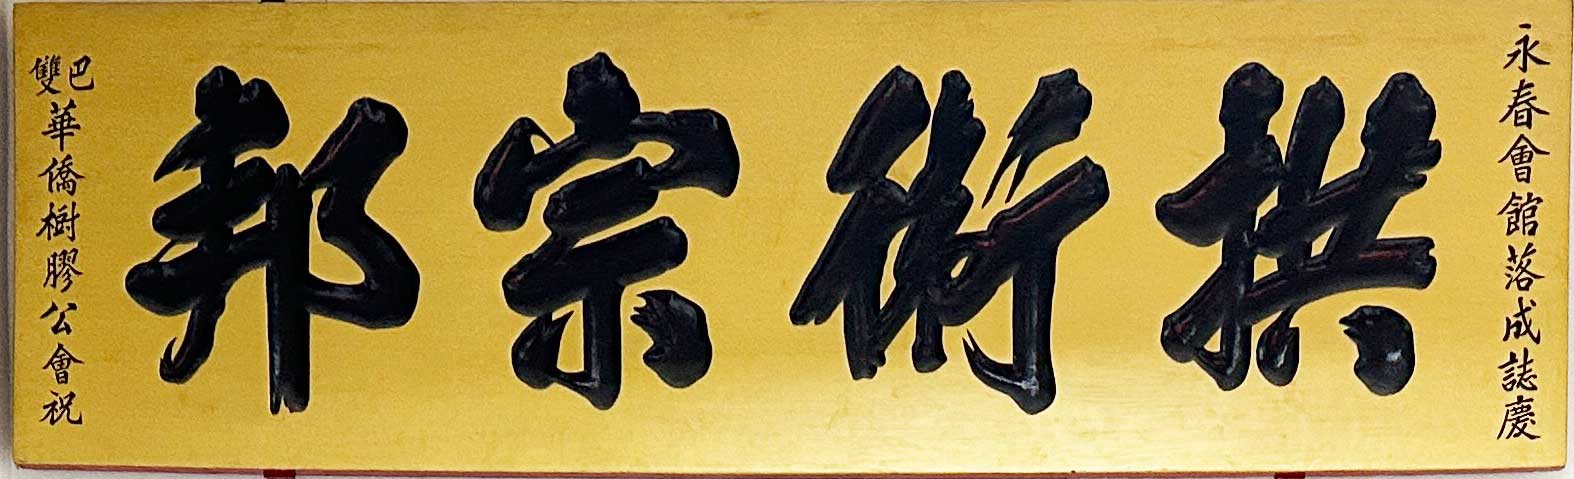 永春會館落成誌慶
拱衛宗邦
巴雙華僑樹膠公會祝